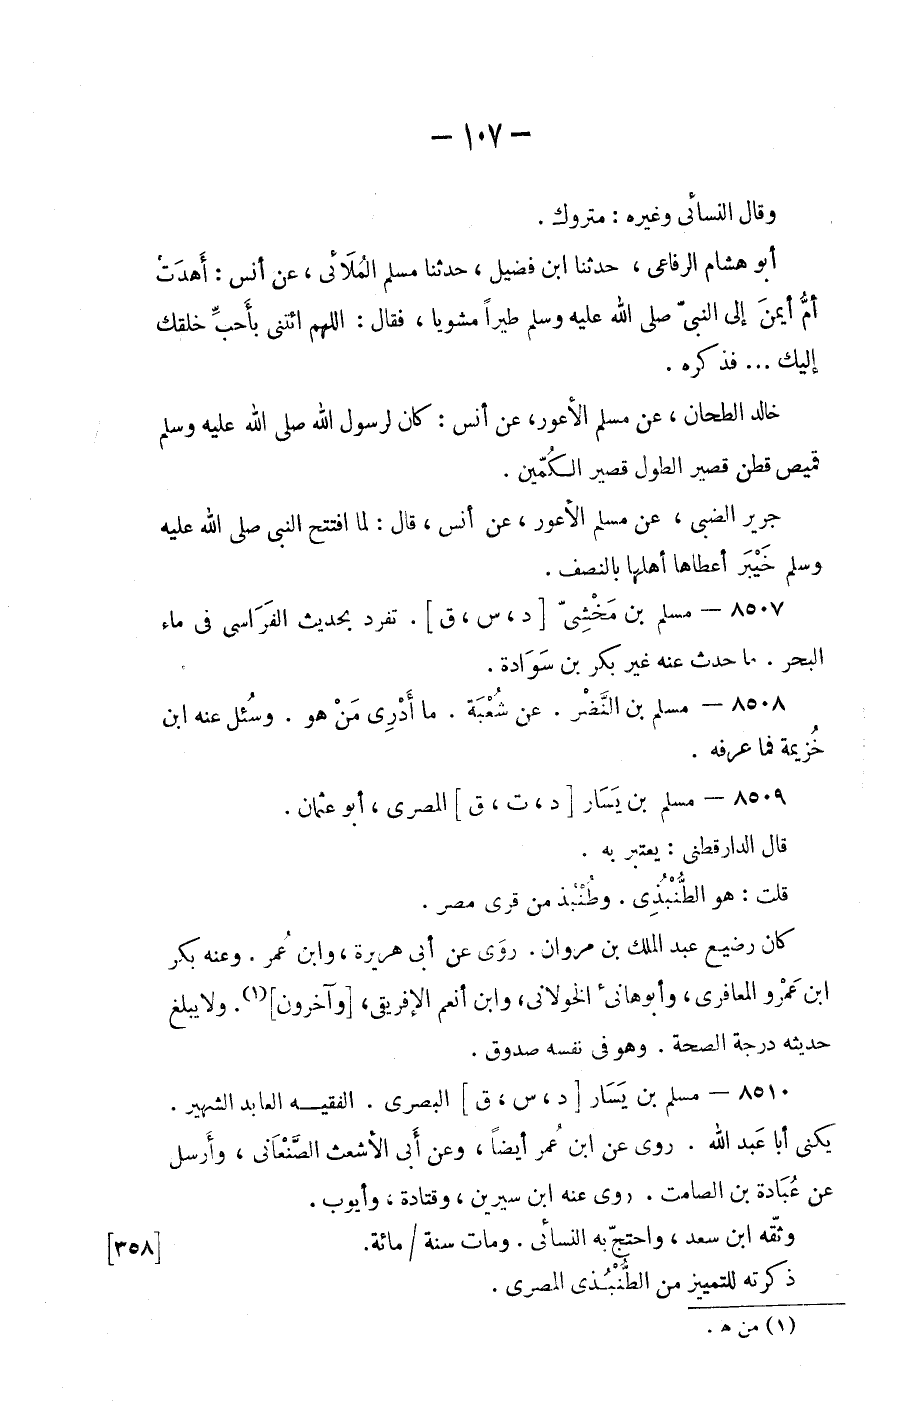 — ١٠٧ —
وقال النسائى وغيره : متروك .
أبو هشام الرفاعى ، حدثنا ابن فضيل ، حدثنا مسلم المُلَائى ، عن أنس : أَهدَتْ
أمُّ أيمنَ إلى النبىّ صلى الله عليه وسلم طيراً مشويا ، فقال : اللهم ائتنى بأَحبِّ خلقك
إليك ... فذكره .
خالد الطحان ، عن مسلم الأعور، عن أنس : كان لرسول الله صلى الله عليه وسلم
قميص قطن قصير الطول قصير الكُمّين .
جرير الضبى ، عن مسلم الأعور ، عن أنس ، قال : لما افتتح النبى صلى الله عليه
وسلم خَيْبَر أعطاها أهلها بالنصف .
٨٥٠٧ — مسلم بن مَخْشِىّ [ د ، س ، ق ] . تفرد بحديث الفَرَاسى فى ماء
البحر . ما حدث عنه غير بكر بن سَوَادة .
٨٥٠٨ — مسلم بن النَّضْر . عن شُعْبَة . ما أَدْرِى مَنْ هو . وسُئل عنه ابن
خُزيمة فما عرفه .
٨٥٠٩ — مسلم بن يَسَار [ د ، ت ، ق ] المصرى ، أبو عثمان .
قال الدارقطنى : يعتبر به .
قلت : هو الطُّنْبُذِى . وطُنْبُذ من قرى مصر .
كان رضيع عبد الملك بن مروان . روَى عن أبى هريرة ، وابن عُمر . وعنه بكر
ابن عَمْرو المعافرى ، وأبوهانىء الخولانى، وابن أنعم الإفريقى، [وآخرون](١). ولا يبلغ
حديثه درجة الصحة . وهو فى نفسه صدوق .
٨٥١٠ — مسلم بن يَسَار [ د ، س ، ق ] البصرى . الفقيه العابد الشهير .
يكنى أبا عَبد الله . روى عن ابن عُمر أيضاً ، وعن أَبى الأشعث الصَّنْعَانى ، وأَرسل
عن عُبَادة بن الصامت . روى عنه ابن سيرين ، وقتادة ، وأيوب .
وثّقه ابن سعد ، واحتجّ به النسائى . ومات سنة / مائة. [٣٥٨]
ذكرته للتمييز من الطُّنْبُذى المصرى .
(١) من ھ .